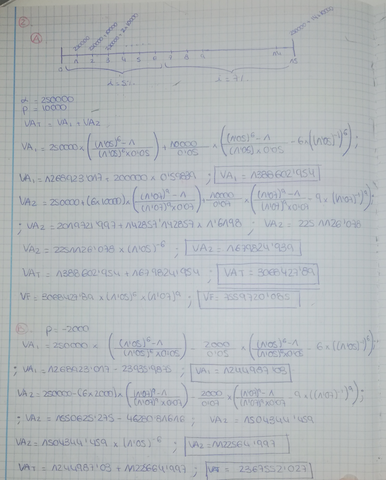 ②
Ⓐ
250000
250000+10000
250000+2×10000
250000+14×10000
0 1 2 3 4 5 6 7 8 9 14 15
i=5%. i=7%.
α = 250000
P = 10000
VAT = VA1 + VA2
VA1 = 250000 × ((1'05)^6 - 1 / (1'05)^6 × 0'05) + 10000/0'05 × ((1'05)^6 - 1 / (1'05)^6 × 0'05 - 6 × ((1'05)^-1)^6);
VA1 = 1268923'017 + 200000 × 0'59839 ; VA1 = 1388602'954
VA2 = 250000 + (6×10000) × ((1'07)^9 - 1 / (1'07)^9 × 0'07) + 10000/0'07 × ((1'07)^9 - 1 / (1'07)^9 × 0'07 - 9 × ((1'07)^-1)^9)
; VA2 = 2019721'997 + 142857'142857 × 1'6198 ; VA2 = 2251126'078
VA2 = 2251126'078 × (1'05)^-6 ; VA2 = 1679824'954
VAT = 1388602'954 + 1679824'954 ; VAT = 3068427'89
VF = 3068427'89 × (1'05)^6 × (1'07)^9 ; VF = 7559720'085
Ⓑ P = -2000
VA1 = 250000 × ((1'05)^6 - 1 / (1'05)^6 × 0'05) - 2000/0'05 × ((1'05)^6 - 1 / (1'05)^6 × 0'05 - 6 × ((1'05)^-1)^6)
; VA1 = 1268923'017 - 23935'986 ; VA1 = 1244987'03
VA2 = 250000 - (6×2000) × ((1'07)^9 - 1 / (1'07)^9 × 0'07) - 2000/0'07 × ((1'07)^9 - 1 / (1'07)^9 × 0'07 - 9 × ((1'07)^-1)^9)
; VA2 = 1550625'275 - 46280'81616 ; VA2 = 1504344'459
VA2 = 1504344'459 × (1'05)^-6 ; VA2 = 1122564'997
VAT = 1244987'03 + 1122564'997 ; VAT = 2367552'027